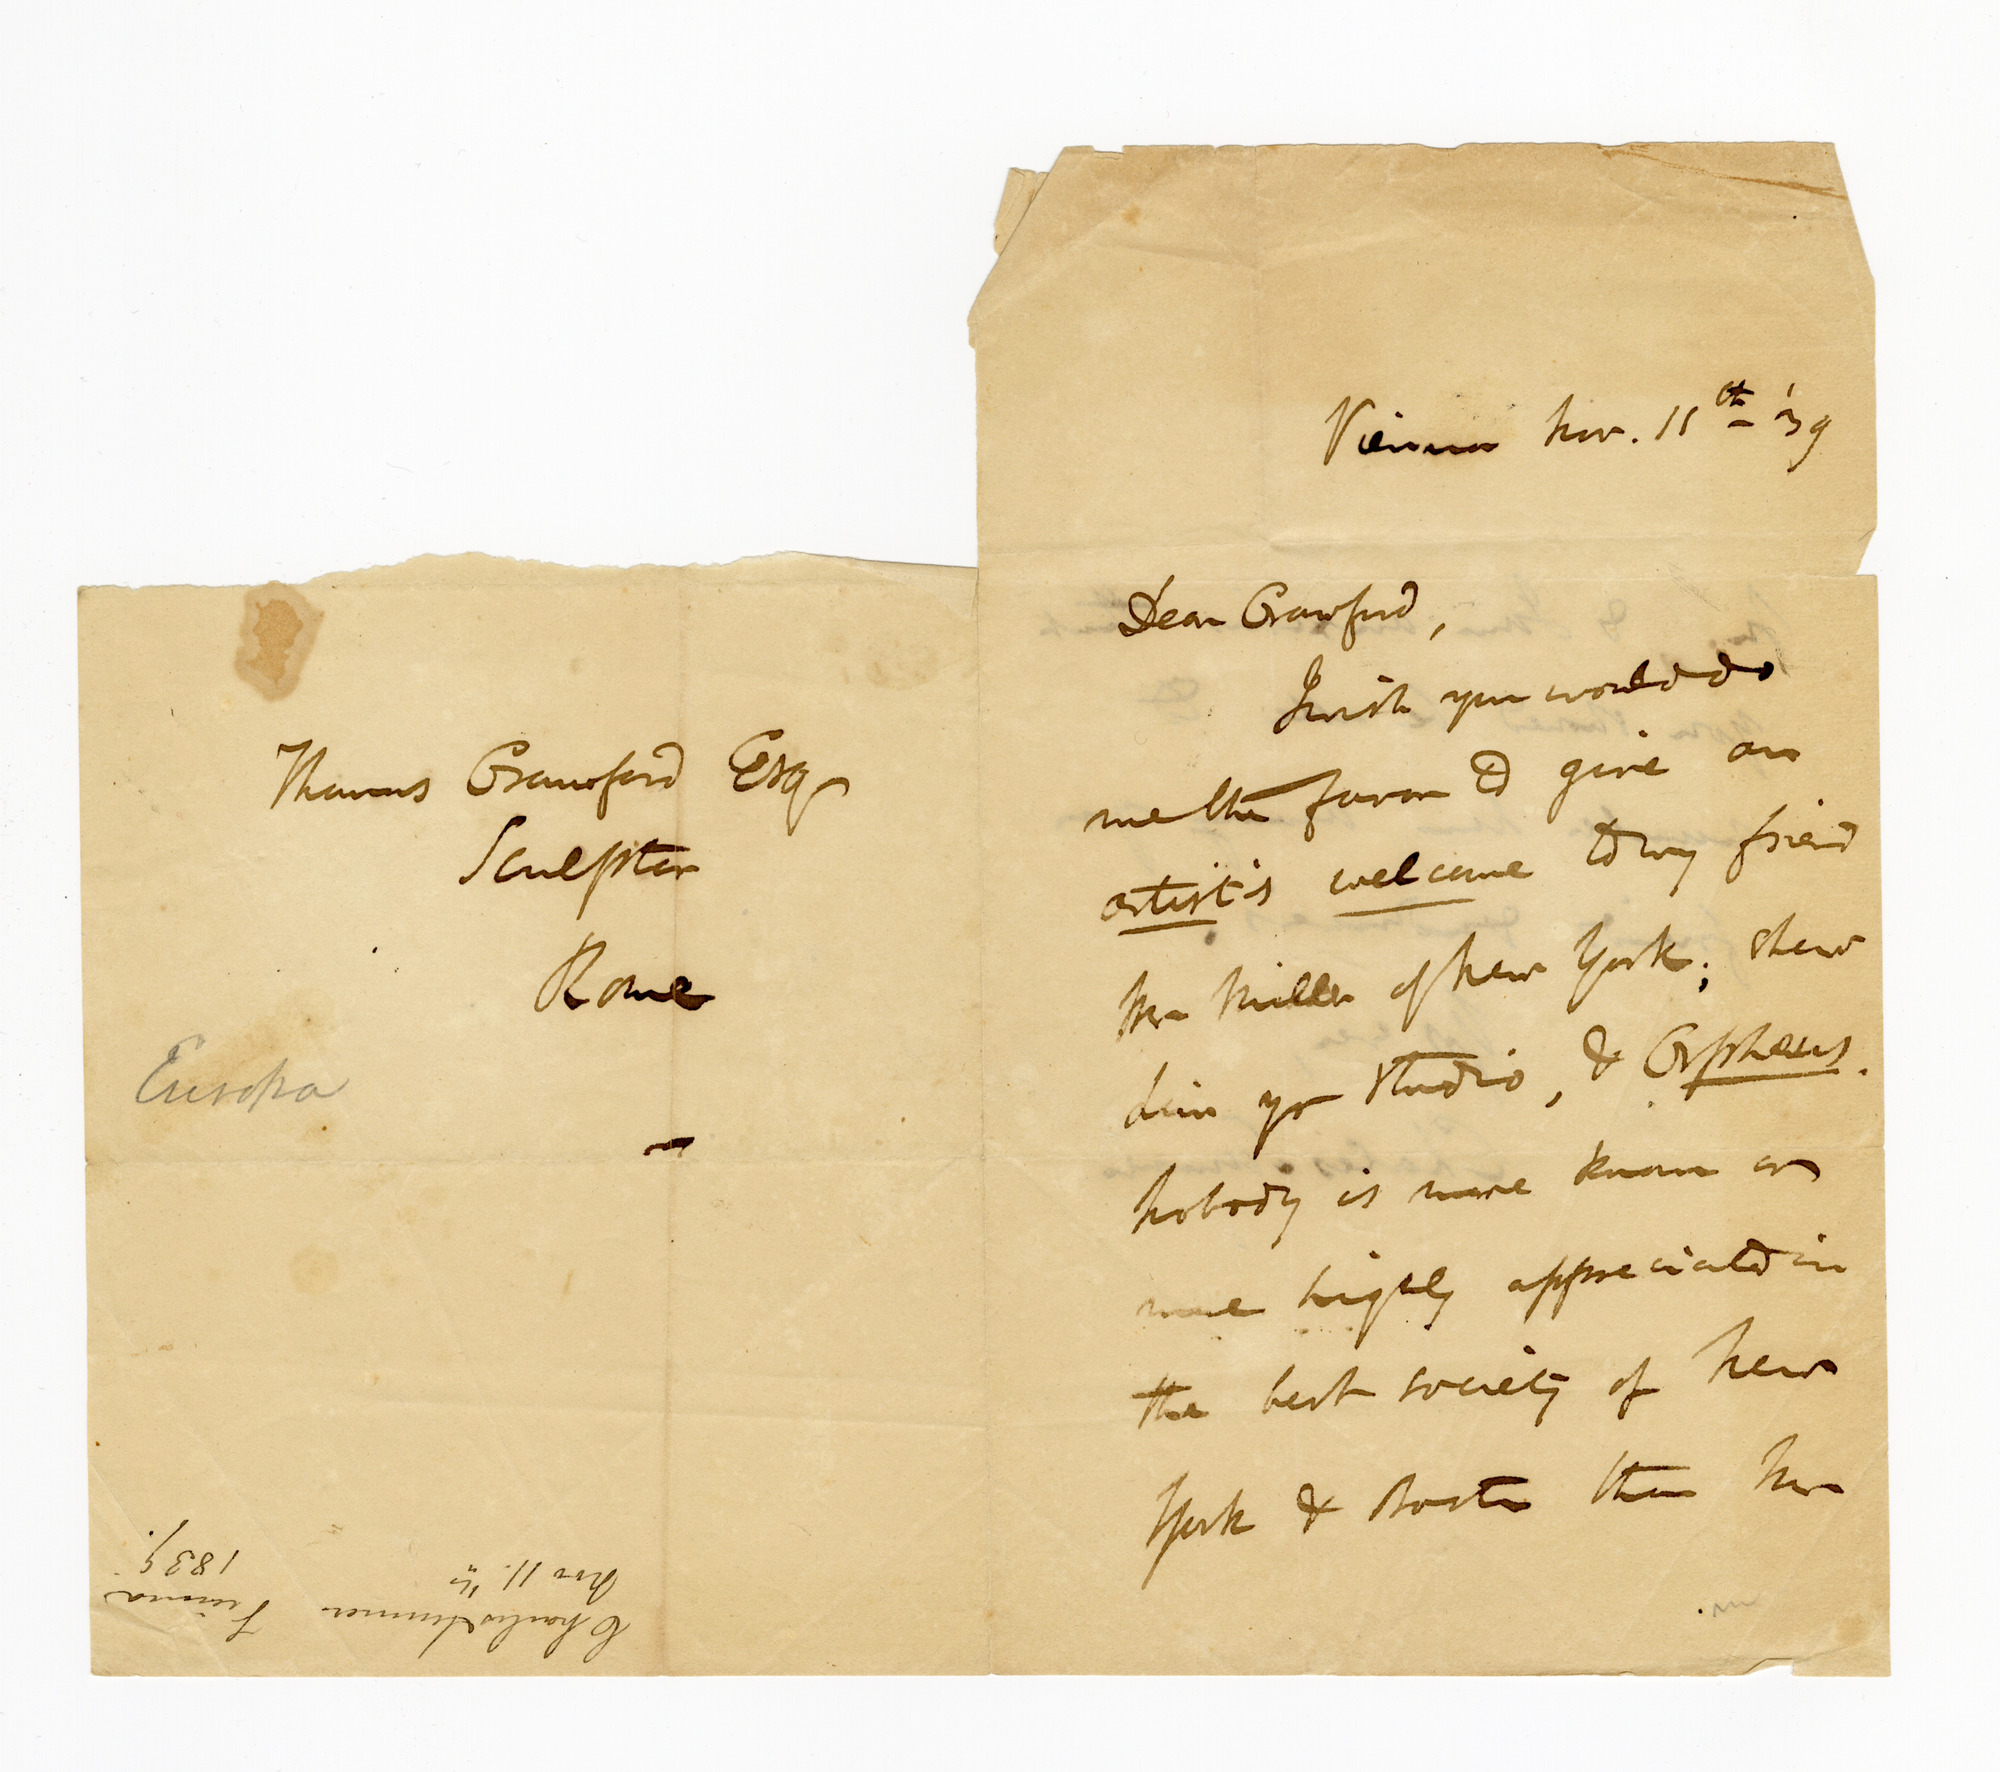 Thomas Crawford Esq
Sculptor
Rome
Europa
Charles Sumner
Nov 11. th
Vienna
1839.
Vienna Nov. 11th '39
Dear Crawford,
I wish you would do
me the favor to give an
artist's welcome to my friend
Mr Miller of New York; shew
him yr studio, & Orpheus.
Nobody is more known or
more highly appreciated in
the best society of New
York & Boston than Mr